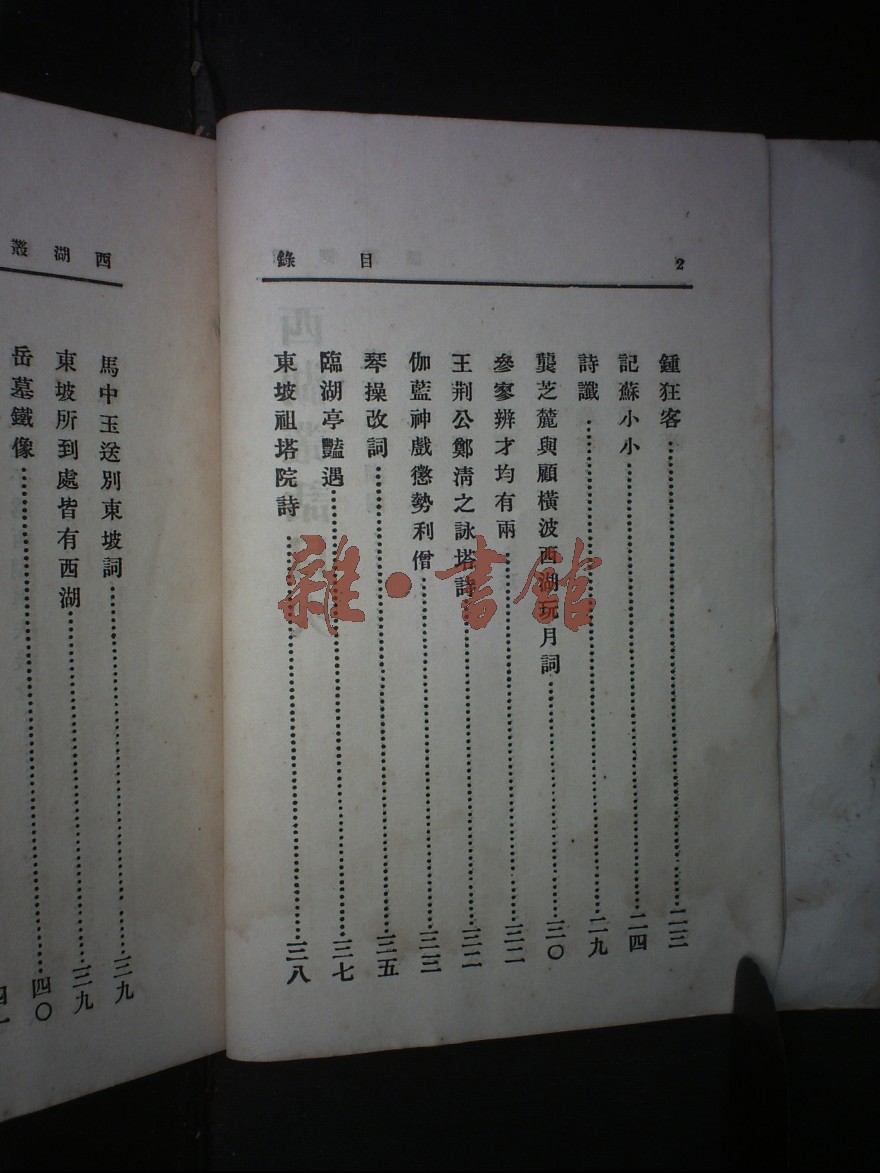 目錄 2
鍾狂客 二三
記蘇小小 二四
詩讖 二九
龔芝麓與顧橫波西湖玩月詞 三〇
參寥辨才均有兩 三二
王荆公鄭淸之詠塔詩 三二
伽藍神戲懲勢利僧 三三
琴操改詞 三五
臨湖亭豔遇 三七
東坡祖塔院詩 三八
西湖叢
馬中玉送別東坡詞 三九
東坡所到處皆有西湖 三九
岳墓鐵像 四〇
四一
雜·書館